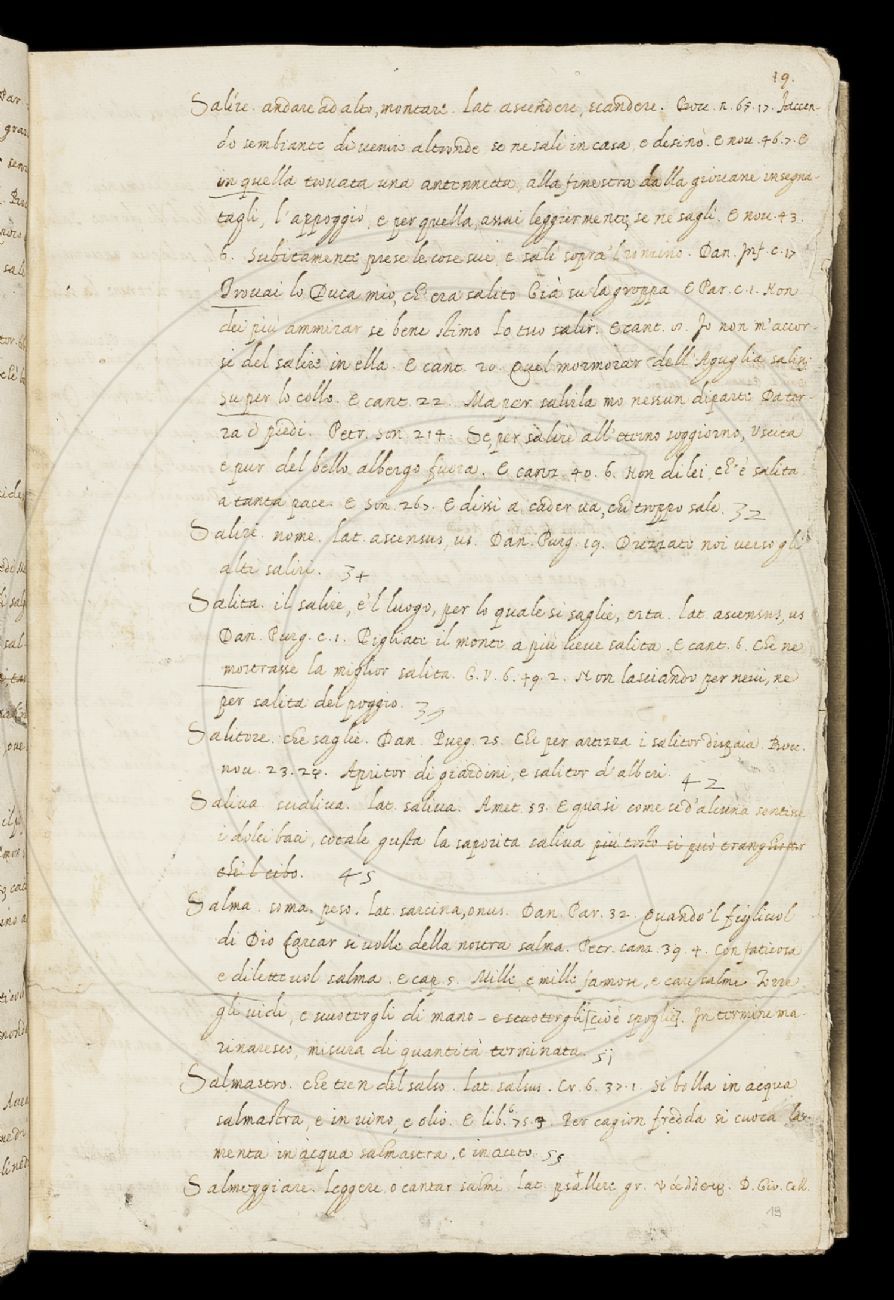 19.
Salire. andare ad alto, montare. Lat. ascendere, scandere. Bocc. n. 65. 17. Faccen-
do sembiante di venire altronde se ne salì in casa, e desinò. E nov. 46. 7. E
in quella trovata una antennetta, alla finestra dalla giovane insegna-
tagli, l'appoggiò, e per quella, assai leggiermente, se ne saglì. E nov. 43.
6. Subitamente prese le cose sue, e salì sopra 'l ronzino. Dan. Inf. c. 17
Trovai lo Duca mio, ch'era salito Già su la groppa E Par. c. 1. Non
dei più ammirar se bene stimo Lo tuo salir. E cant. 8. Io non m'accor-
si del salire in ella. E cant. 20. Quel mormorar dell'Aguglia salissi
su per lo collo. E cant. 22. Ma per salirla mo nessun diparte Da ter-
ra i piedi. Petr. Son. 214. Se, per salire all'eterno soggiorno, Uscita
è pur del bello albergo fuora. E canz. 40. 6. Non di lei, ch'è salita
a tanta pace. E Son. 267. E dissi a cader va, chi troppo sale. 32
Salire. nome. Lat. ascensus, us. Dan. Purg. 19. Drizzate noi verso gli
alti saliri. 34
Salita. il salire, e 'l luogo, per lo quale si saglie, erta. Lat. ascensus, us
Dan. Purg. c. 1. Pigliate il monte a più lieve salita. E cant. 6. Che ne
mostrasse la miglior salita. G. V. 6. 49. 2. Non lasciando per nevi, ne
per salita del poggio. 39
Salitore. che saglie. Dan. Purg. 25. Che per artezza i salitor dispaia. Bocc.
nov. 23. 29. Apritor di giardini, e salitor d'alberi. 42
Saliva scialiva. Lat. saliva. Amet. 53. E quasi come se d'alcuna sentisse
i dolci baci, cotale gusta la saporita saliva più tosto si può trangliottir
che 'l cibo. 45
Salma. soma. peso. Lat. sarcina, onus. Dan. Par. 32. Quando 'l figliuol
di Dio Carcar si volle della nostra salma. Petr. canz. 39. 4. Con faticosa
e dilettevol salma. E cap. 5. Mille, e mille famose, e care salme Torre
gli vidi, e scuotergli di mano e scuotergli [cioè spoglie]. In termine ma-
rinaresco, misura di quantità terminata. 51
Salmastro. che tien del salso. Lat. salsus. Cr. 6. 37. 1. Si bolla in acqua
salmastra, e in vino, e olio. E lib. 6 75. 3 Per cagion fredda si cuoca la
menta in acqua salmastra, e in aceto. 55
Salmeggiare. Leggere, o cantar salmi. Lat. psallere gr. ψάλλειν. D. Gio. Cell.
19